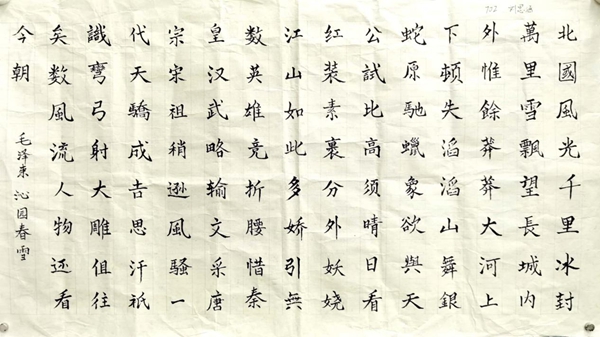 北國風光千里冰封
萬里雪飄望長城内
外惟餘莽莽大河上
下頓失滔滔山舞銀
蛇原馳蠟象欲與天
公試比高须晴日看
红装素裹分外妖娆
江山如此多娇引無
数英雄竞折腰惜秦
皇汉武略输文采唐
宗宋祖稍逊風騷一
代天驕成吉思汗衹
識彎弓射大雕俱往
矣数風流人物还看
今朝
毛泽東 沁园春雪
702